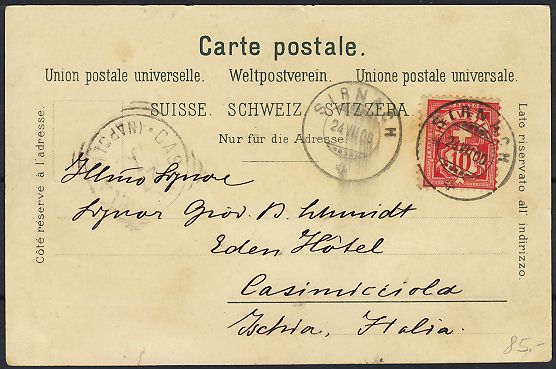 Carte postale.
Union postale universelle. Weltpostverein. Unione postale universale.
SUISSE. SCHWEIZ. SVIZZERA
Nur für die Adresse.
Côté réservé à l'adresse.
Lato riservato all' indirizzo.
SIRNACH
24 VII 00
SIRNACH
24 VII 00
10
(NAPOLI) CA
Illmo Signore
Signor Giov. B. Schmidt
Eden Hôtel
Casimicciola
Ischia, Italia.
85.-